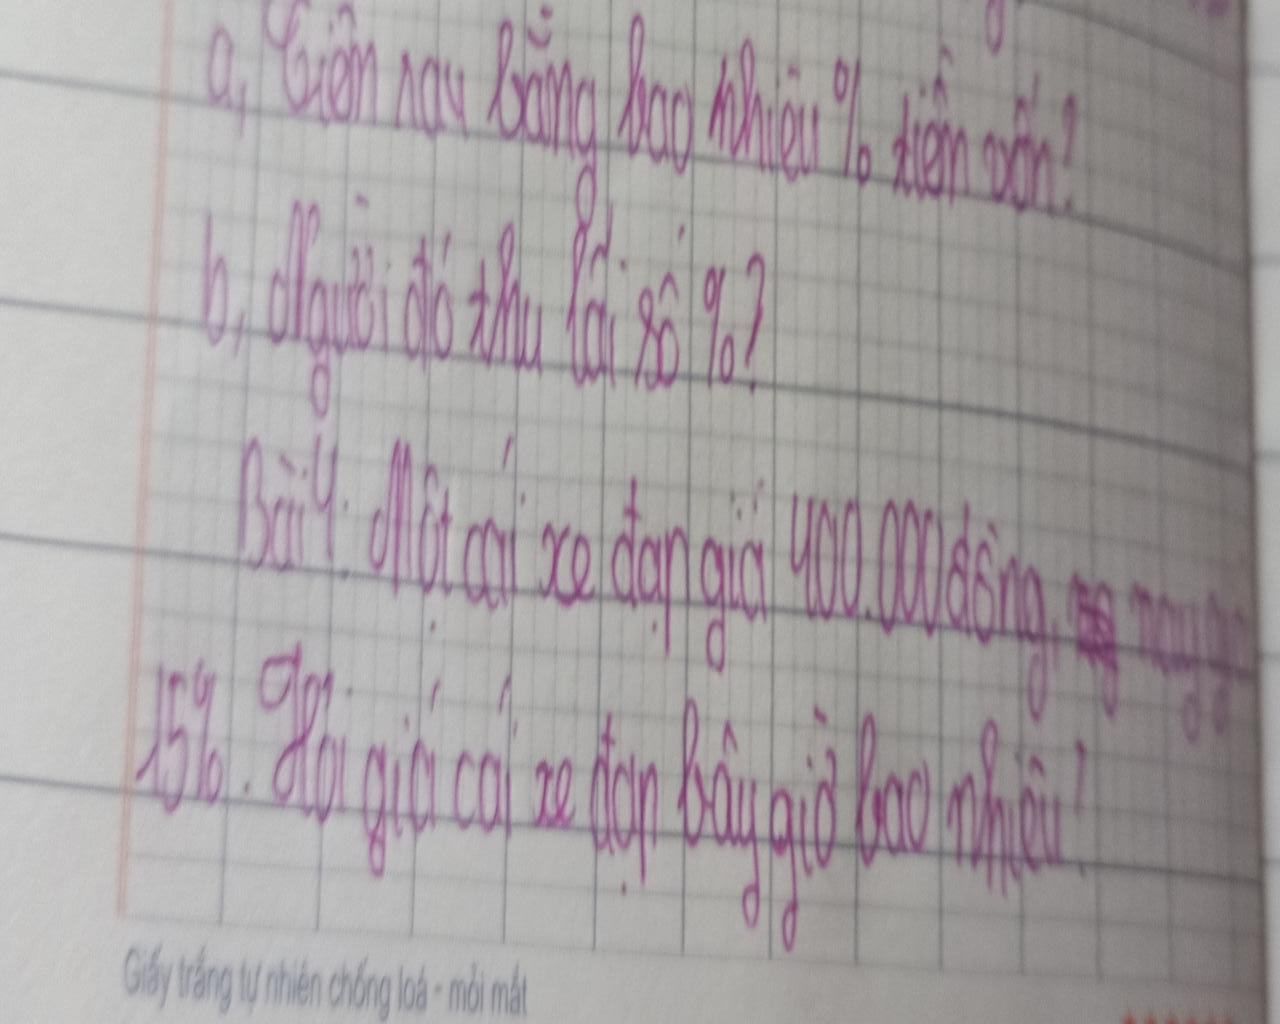 a, Tiền rau bằng bao nhiêu % tiền vốn?
b, Người đó thu lãi số %?
Bài 4. Một cái xe đạp giá 400.000 đồng,
15%. Hỏi giá cái xe đạp bây giờ bao nhiêu?
Giấy trắng tự nhiên chống loá - mỏi mắt